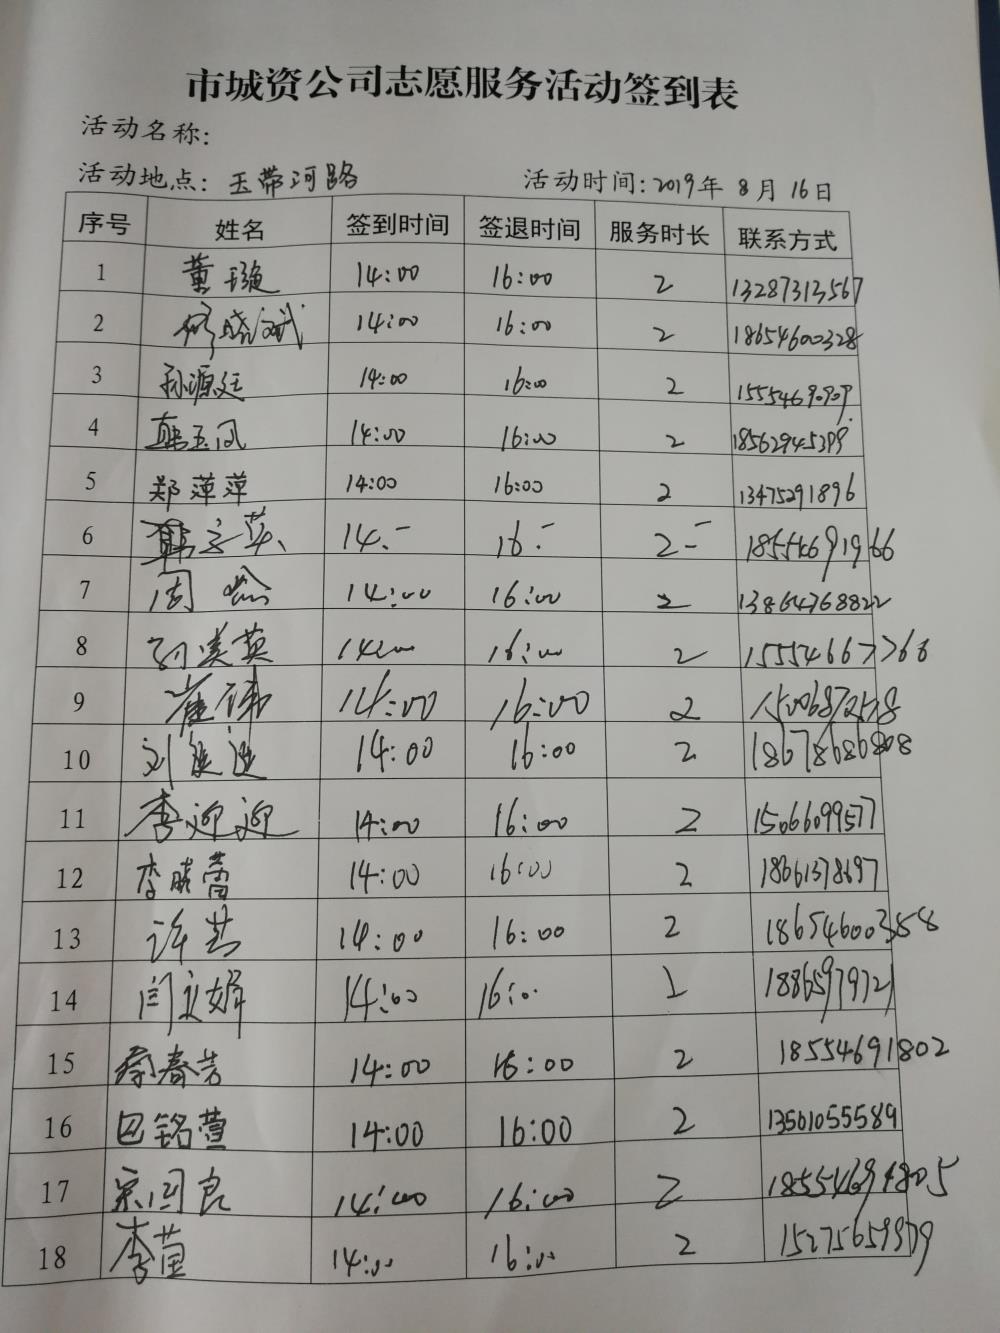 市城资公司志愿服务活动签到表
活动名称:
活动地点: 玉带河路 活动时间: 2019年 8月 16日
序号 姓名 签到时间 签退时间 服务时长 联系方式
1 董璇 14:00 16:00 2 13287313567
2 修晓斌 14:00 16:00 2 18654600328
3 孙源廷 14:00 16:00 2 15554690909
4 韩玉凤 14:00 16:00 2 18562945399
5 郑萍萍 14:00 16:00 2 13475291896
6 14:- 16:- 2 18554691966
7 周 14:00 16:00 2 13864768822
8 14:00 16:00 2 15554667766
9 崔伟 14:00 16:00 2
10 刘 14:00 16:00 2 18678686808
11 李迎迎 14:00 16:00 2 15066099577
12 李晓蕾 14:00 16:00 2 18661378697
13 许芸 14:00 16:00 2 18654600358
14 闫文娟 14:00 16:0· 1 18865979721
15 蔡春芳 14:00 16:00 2 18554691802
16 巴铭萱 14:00 16:00 2 13501055589
17 宋国良 14:00 16:00 2 18554694805
18 李萱 14:00 16:00 2 15275659879